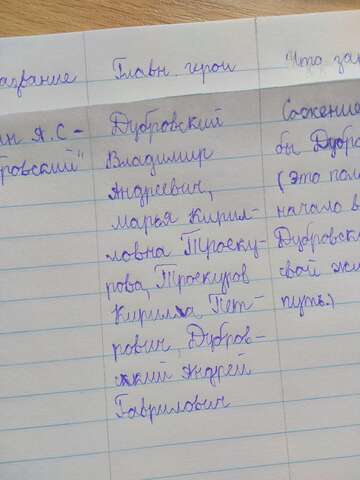 азвание
Главн. герои
Что за
ин А.С -
бровский"
Дубровский
Владимир
Андреевич,
Марья Кирил-
ловна Троеку-
рова, Троекуров
Кирилла Пет-
рович, Дубров-
ский Андрей
Гаврилович
бы Дубро
(это пом
начало в
Дубровск
свой жи
путь.)